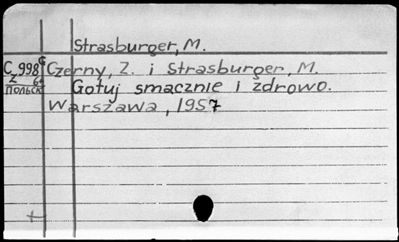 Strasburger, M.
C 998 Czerny, Z. i Strasburger, M.
Польск Gotuj smacznie i zdrowo.
Warszawa, 1957